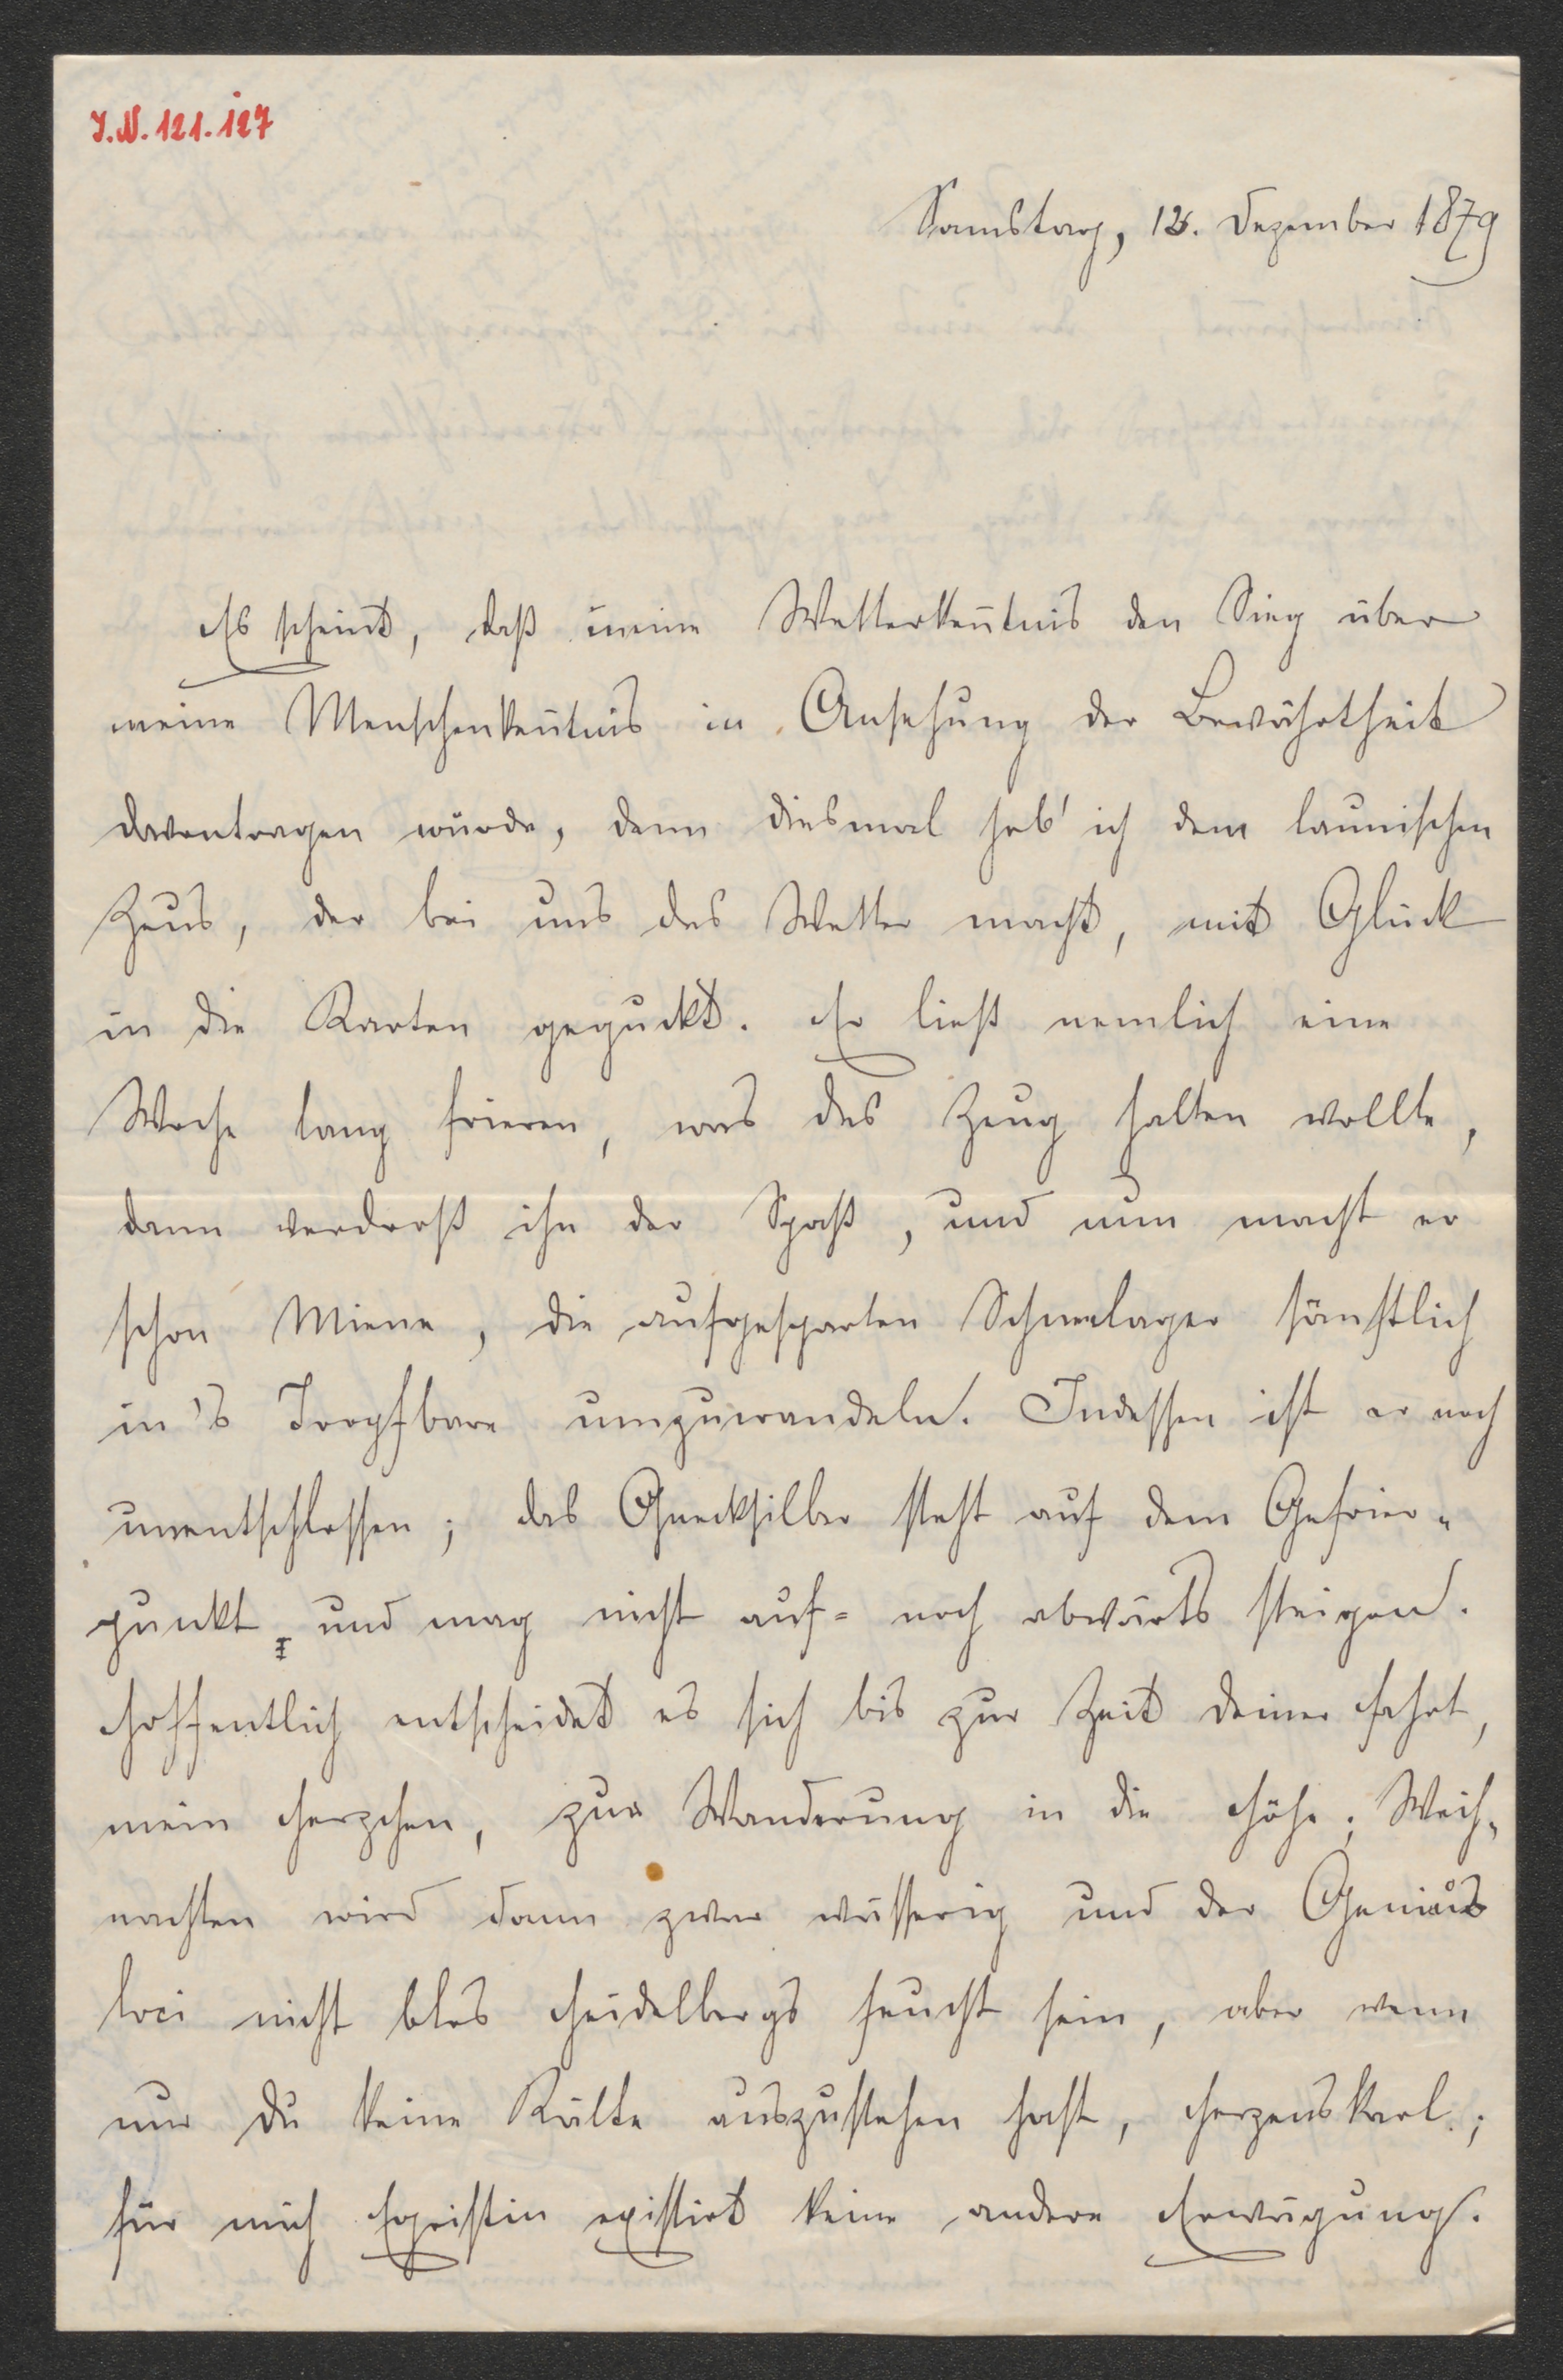 I.N. 121.127
Samstag, 13. Dezember 1879
Es scheint, daß meine Wetterkentnis den Sieg über
meine Menschenkentnis in Ansehung der Bewährtheit
davontragen wurde, denn diesmal hab' ich dem launischen
Zeus, der bei uns das Wetter macht, mit Glück
in die Karten geguckt. Er ließ nemlich eine
Woche lang frieren, was das Zeug halten wollte,
dann verdroß ihn der Spaß, und nun macht er
schon Miene, die aufgesparten Schneelager sänftlich
in's Tropfbare umzuwandeln. Indessen ist er noch
unentschlossen; das Quecksilber steht auf dem Gefrier-
punkt und mag nicht auf- noch abwärts steigen.
Hoffentlich entscheidet es sich bis zur Zeit deiner Fahrt,
mein Herzchen, zur Wanderung in die Höhe; Weih-
nachten wird dann zwar wässerig und der Genius
loci nicht blos Heidelbergs feucht sein, aber wenn
nur du keine Kälte auszustehen hast, Herzenskarl;
für mich Egoistin existirt keine andere Erwägung.